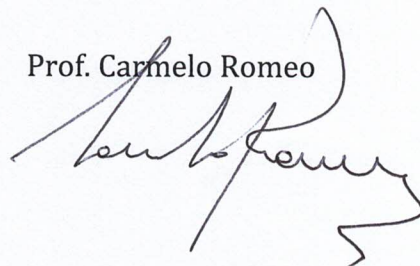 Prof. Carmelo Romeo